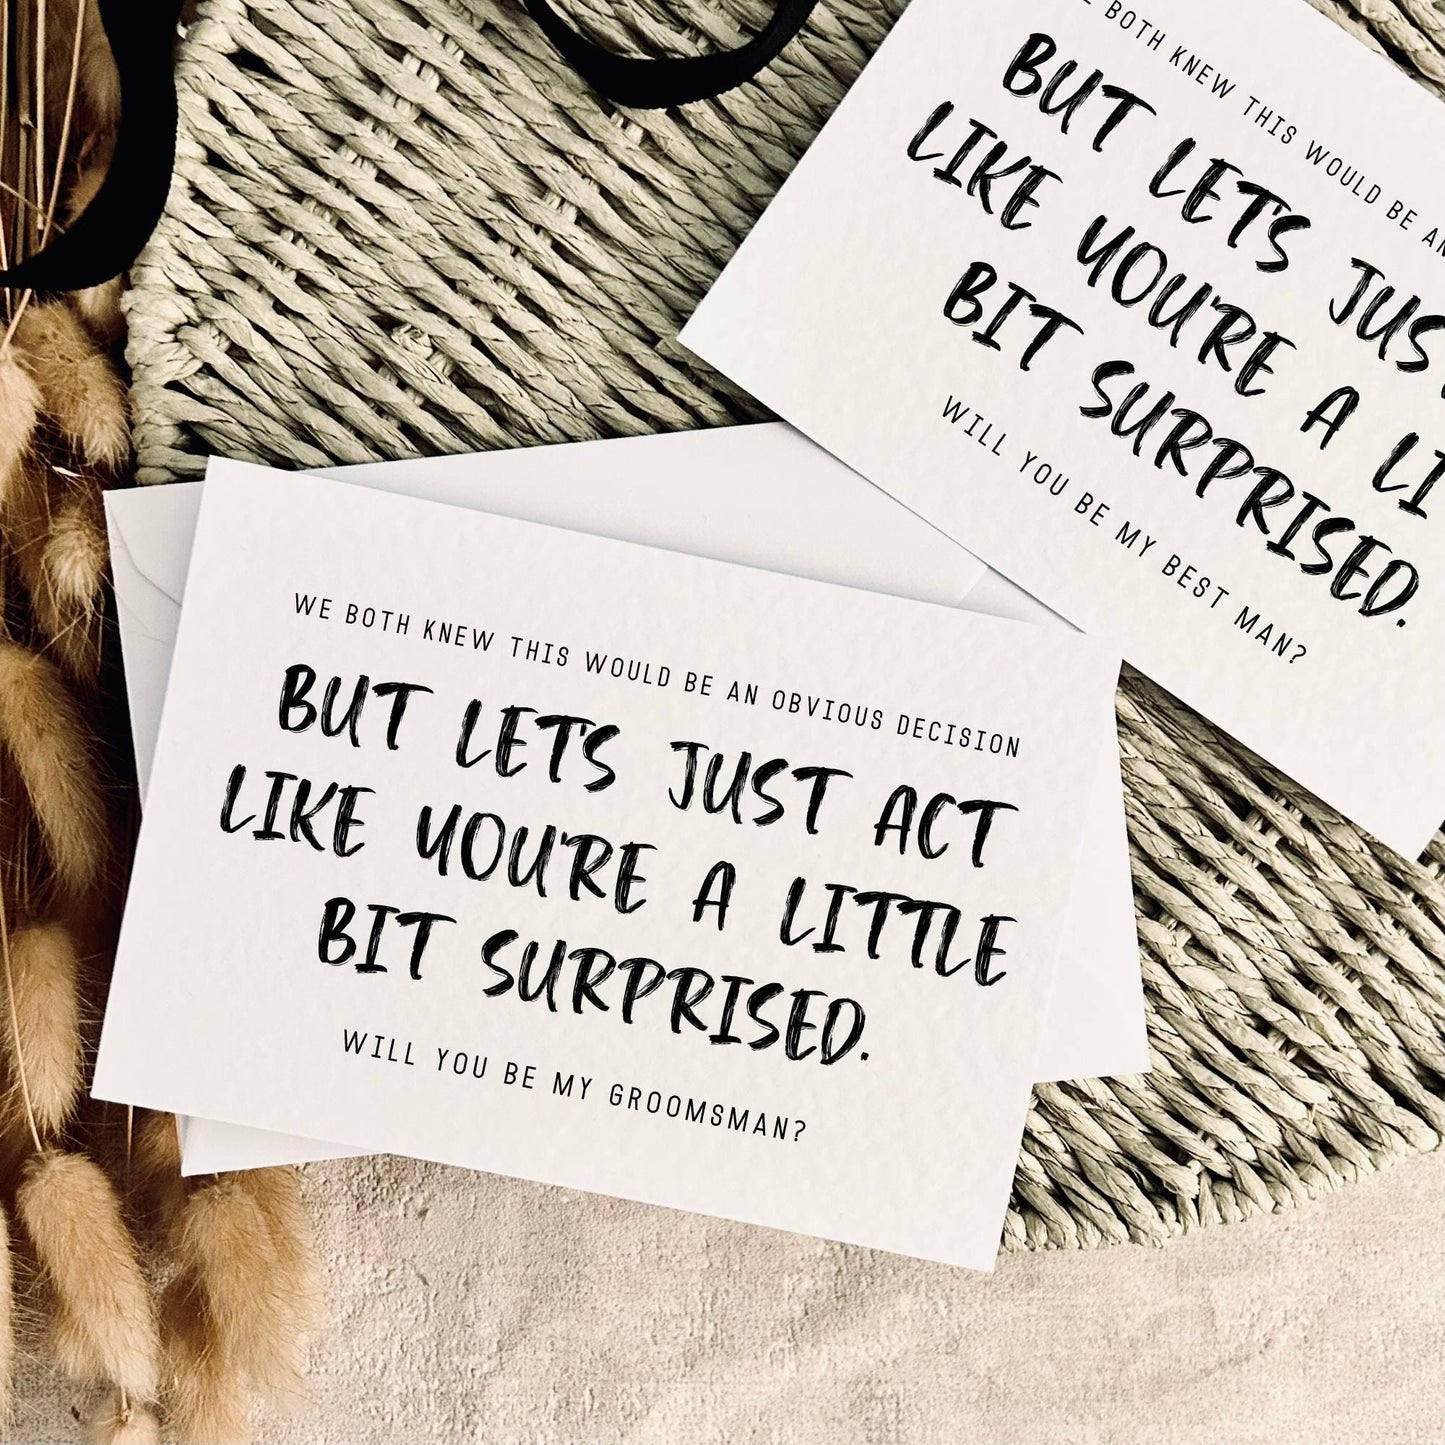 WE BOTH KNEW THIS WOULD BE AN OBVIOUS DECISION
BUT LET'S JUST ACT
LIKE YOU'RE A LITTLE
BIT SURPRISED.
WILL YOU BE MY GROOMSMAN?
BOTH KNEW THIS WOULD BE AN
BUT LET'S JUST
LIKE YOU'RE A
BIT SURPRISED.
WILL YOU BE MY BEST MAN?